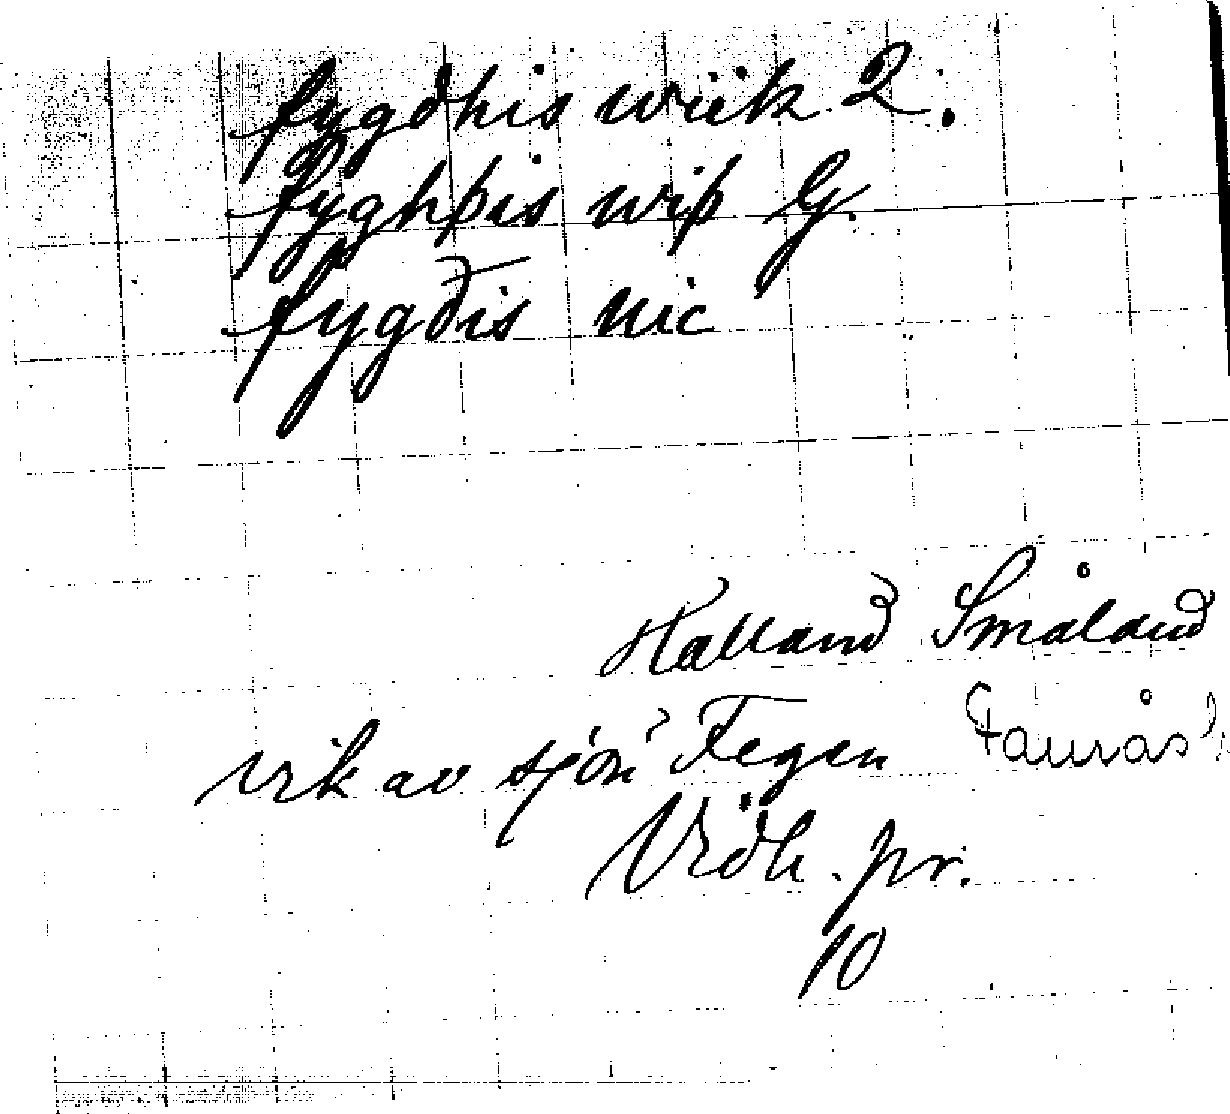 fygdhis wiik 2.
fyghþis wiþ G.
fygdis uic
Halland Småland
vik av sjön Fegen Faurås h
Vidh. pr.
10